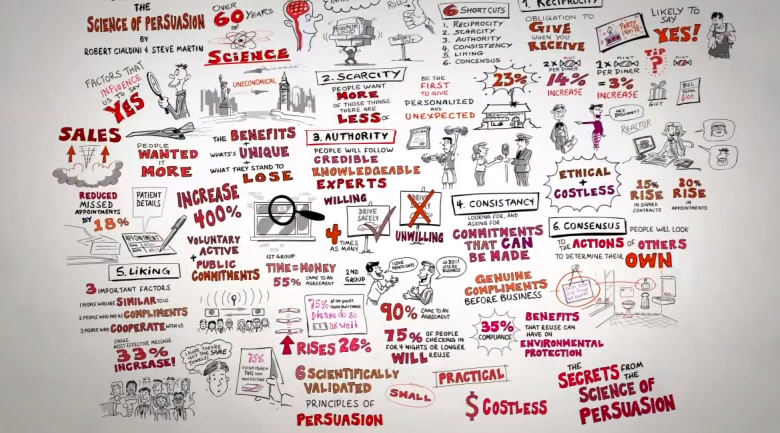 THE
SCIENCE OF PERSUASION
BY
ROBERT CIALDINI & STEVE MARTIN
OVER
60 OF YEARS
SCIENCE
RULES
6 SHORTCUTS
1. RECIPROCITY
2. SCARCITY
3. AUTHORITY
4. CONSISTENCY
5. LIKING
6. CONSENSUS
1. RECIPROCITY
OBLIGATION TO
GIVE
WHEN YOU
RECEIVE
PARTY
INVITE
LIKELY TO
SAY
YES!
FACTORS THAT
INFLUENCE
US TO SAY
YES
UNECONOMICAL
2. SCARCITY
PEOPLE WANT
MORE
OF THOSE THINGS
THERE ARE
LESS OF
BE THE
FIRST
TO GIVE
PERSONALIZED
AND
UNEXPECTED
23%
2 x MINT
PER DINER
14%
INCREASE
1 x MINT
PER DINER
=3%
INCREASE
TIP
?
MINT
?
GIFT
BILL
TOTAL
$100
SALES
PEOPLE
WANTED
IT
MORE
THE BENEFITS
+
WHATS'S UNIQUE
+
WHAT THEY STAND TO
LOSE
3. AUTHORITY
PEOPLE WILL FOLLOW
CREDIBLE
KNOWLEDGEABLE
EXPERTS
HE'S
BRILLIANT!
REALTOR
ETHICAL
+
COSTLESS
15%
RISE
IN SIGNED
CONTRACTS
20%
RISE
IN
APPOINTMENTS
REDUCED
MISSED
APPOINTMENTS
BY 18%
PATIENT
DETAILS
APPOINTMENT
INCREASE
400%
VOLUNTARY
ACTIVE
+ PUBLIC
COMMITMENTS
WILLING
4
TIMES AS
MANY
DRIVE
SAFELY
DRIVE
UNWILLING
4. CONSISTANCY
LOOKING FOR, AND
ASKING FOR
COMMITMENTS
THAT CAN
BE MADE
6. CONSENSUS
PEOPLE WILL LOOK
TO THE ACTIONS OF OTHERS
TO DETERMINE THEIR OWN
5. LIKING
3 IMPORTANT FACTORS
1. PEOPLE WHO ARE SIMILAR TO US
2. PEOPLE WHO PAY US COMPLIMENTS
3. PEOPLE WHO COOPERATE WITH US
1ST GROUP
TIME=MONEY
55% CAME TO AN
AGREEMENT
2ND
GROUP
SO DO I!
90% CAME TO AN
AGREEMENT
GENUINE
COMPLIMENTS
BEFORE BUSINESS
75%
please do so
as well
RISES 26%
75% OF PEOPLE
CHECKING IN
FOR 4 NIGHTS OR LONGER
WILL REUSE
35%
COMPLIANCE
BENEFITS
THAT REUSE CAN
HAVE ON
ENVIRONMENTAL
PROTECTION
SINGLE
MOST EFFECTIVE MESSAGE
33%
INCREASE!
75%
6 SCIENTIFICALLY
VALIDATED
PRINCIPLES OF
PERSUASION
SMALL
PRACTICAL
$ COSTLESS
THE
SECRETS FROM
THE
SCIENCE OF
PERSUASION